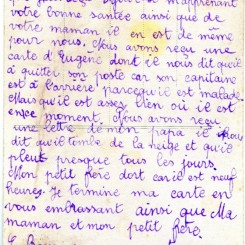 m'apprenant
votre bonne santée ainsi que de
votre maman il en est de même
pour nous. Nous avons reçu une
carte d'Eugène dont il nous dit qu'il
a quitter son poste car son capitaine
est à l'arrière parcequ'il est malade.
Mais qu'il est assez bien où il est
en ce moment. Nous avons reçu
une lettre de mon papa il nous
dit qu'il tombe de la neige et qu'il
pleut presque tous les jours.
Mon petit frère dort car il est neuf
heures. Je termine ma carte en
vous embrassant ainsi que Ma
maman et mon petit frère.